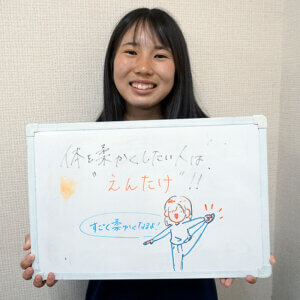 体を柔かくしたい人は
"えんたけ"!!
すごく柔かくなるよ!